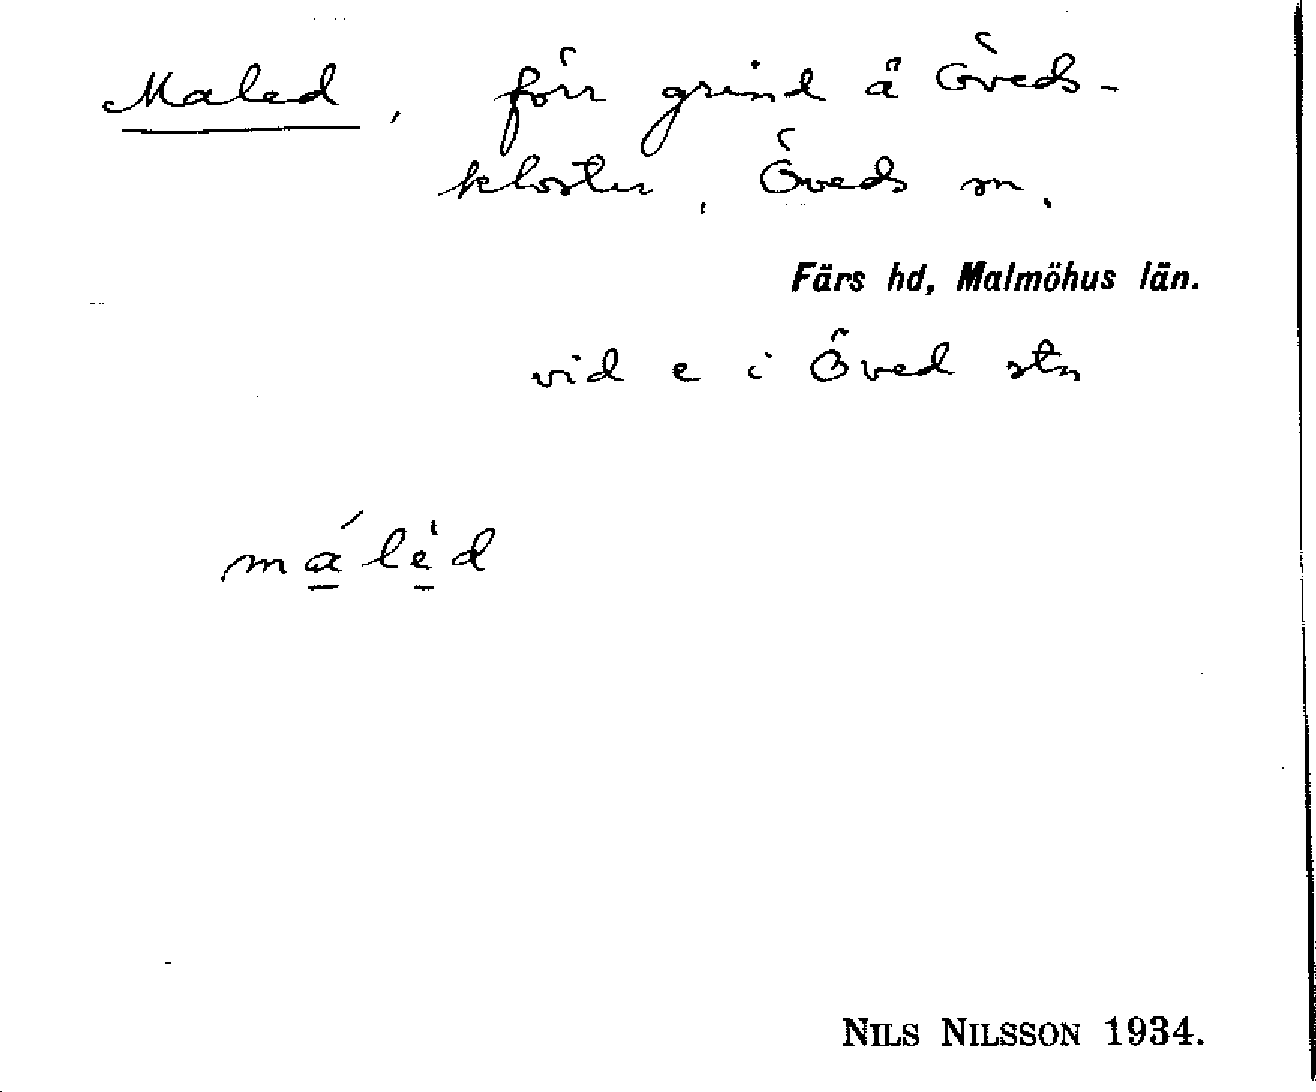 Maled, förr grind å Öveds-
kloster, Öveds sn.
Färs hd, Malmöhus län.
vid e i Öved stn
málèd
NILS NILSSON 1934.